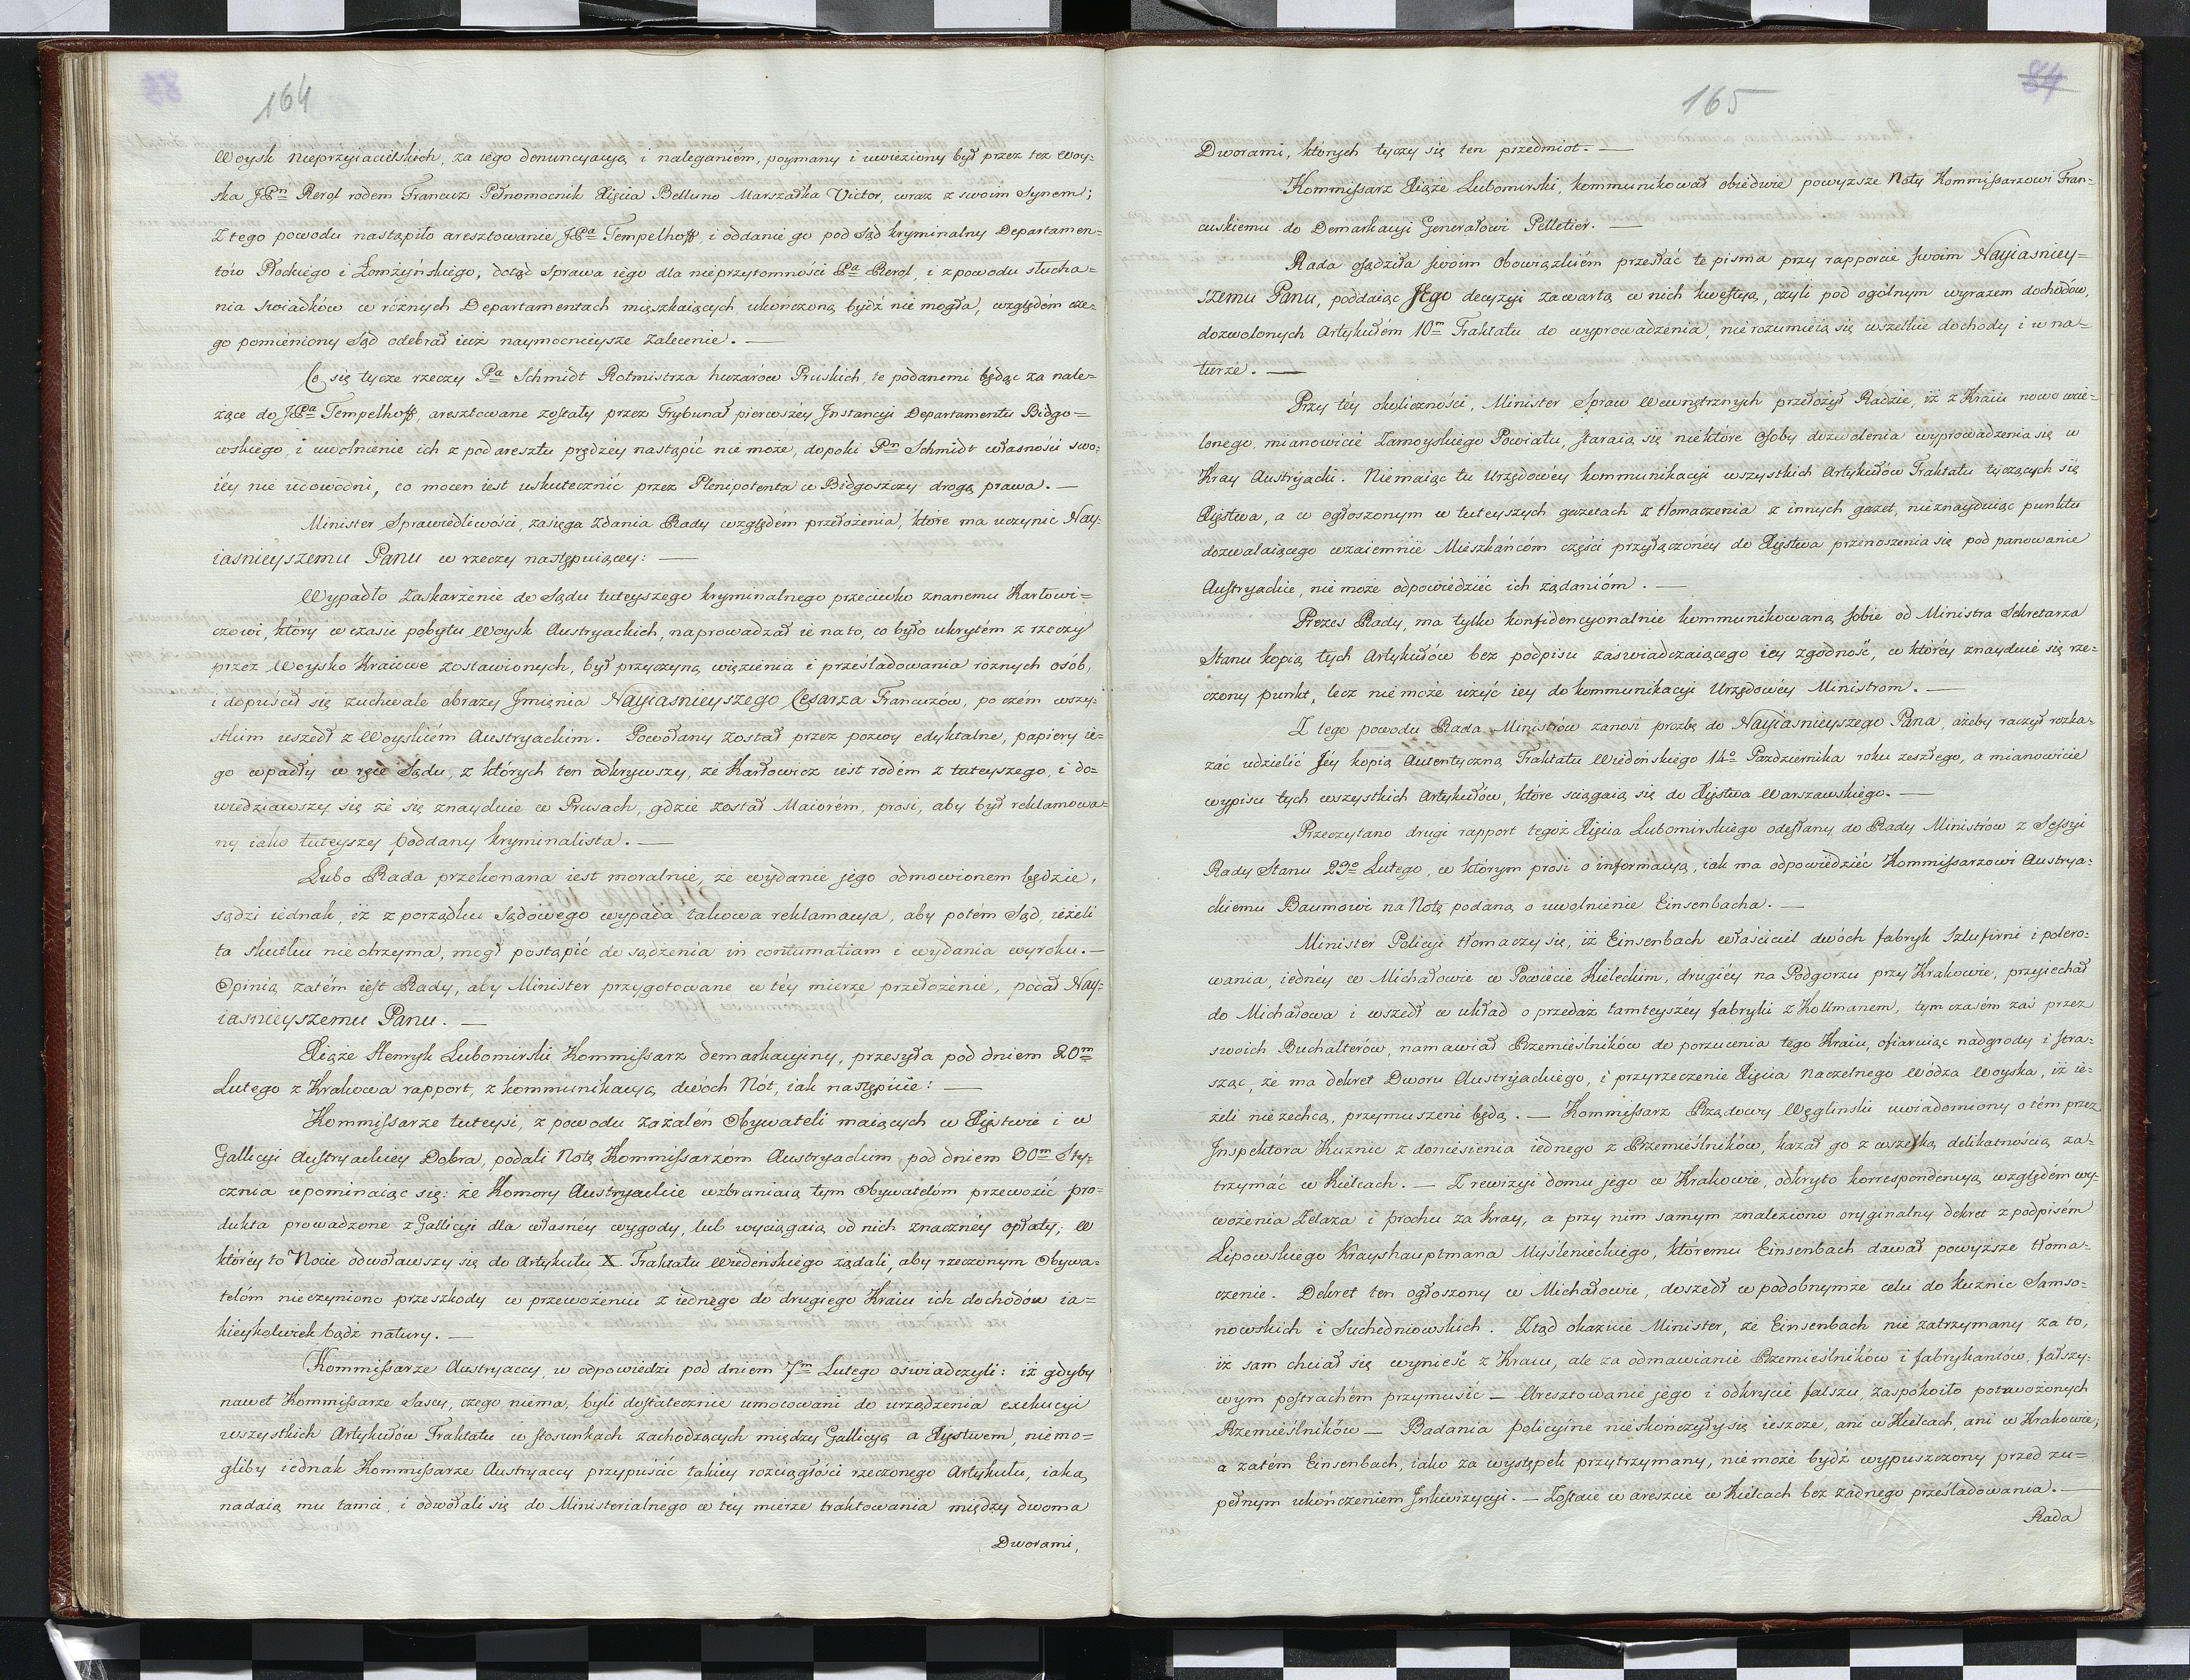 164
Woysk nieprzyiacielskich, za iego denuncyacyą i naleganiém, poymany i uwięziony był przez też Woy=
ska JPn Rerol rodem Francuz Pełnomocnik Xięcia Belluno Marszałka Victor, wraz z swoim Synem;
Z tego powodu nastąpiło aresztowanie JPa Tempelhoff, i oddanie go pod Sąd kryminalny Departamen=
tów Płockiego i Łomżyńskiego, dotąd Sprawa iego dla nieprzytomności Pa Rerol, i z powodu słucha=
nia swiadków w różnych Departamentach mięszkaiących ukończoną bydź nie mogła, względem cze=
go pomieniony Sąd odebrał iuż naymocnieysze zalecenie. —
Co się tycze rzeczy Pa Schmidt Rotmistrza huzarów Pruskich, te podanemi będąc za nale=
żące do JPa Tempelhoff, aresztowane zostały przez Trybunał pierwszéy Jnstancyi Departamentu Bidgo=
wskiego, i uwolnienie ich z pod aresztu prędzéy nastąpić nie może, dopoki Pn Schmidt własności swo=
iéy nie udowodni, co mocen iest uskutecznić przez Plenipotenta w Bidgoszczy drogą prawa. —
Minister Sprawiedliwości, zasięga zdania Rady względem przełożenia, które ma uczynić Nay=
iasnieyszemu Panu w rzeczy następuiącey: —
Wypadło Zaskarżenie do Sądu tuteyszego kryminalnego przeciwko znanemu Karłowi=
czowi, który w czasie pobytu Woysk Austryackich, naprowadzał ie na to, co było ukrytém z rzeczy
przez Woysko Kraiowe zostawionych, był przyczyną więzienia i prześladowania róznych osób,
i dopuścił się zuchwale obrazy Jmienia Nayiasnieyszego Cesarza Francuzów, po czém wszy=
stkim uszedł z Woyskiém Austryackim. Powołany został przez pozwy edyktalne, papiery ie=
go wpadły w ręce Sądu, z których ten odkrywszy, że Karłowicz iest rodém z tuteyszego, i do=
wiedziawszy się że się znayduie w Prusach, gdzie został Maiorém, prosi, aby był reklamowa=
ny iako tuteyszy poddany kryminalista. —
Lubo Rada przekonana iest moralnie, że wydanie jego odmowionem będzie,
sądzi iednak, iż z porządku Sądowego wypada takowa reklamacya, aby potém Sąd, ieżeli
ta skutku nie otrzyma, mógł postąpić do sądzenia in contumatiam i wydania wyroku. —
Opinią zatém iest Rady, aby Minister przygotowane w téy mierze przełożenie, podał Nay=
iasnieyszemu Panu. —
Xiąże Henryk Lubomirski, Kommissarz demarkacyiny, przesyła pod dniem 20m
Lutego z Krakowa rapport, z kommunikacyą dwóch Nót, iak następuie: —
Kommissarze tuteysi, z powodu zażaleń Obywateli maiących w Xięstwie i w
Gallicyi Austryackiey Dobra, podali Notę Kommissarzóm Austryackim pod dniem 30m Sty=
cznia upominaiąc się: że Komory Austryackie wzbraniaią tym Obywatelóm przewozić pro=
dukta prowadzone z Gallicyi dla własnéy wygody, lub wyciągaią od nich znacznéy opłaty; w
któréy to Nocie odwoławszy się do Artykułu X. Traktatu Wiedeńskiego żądali, aby rzeczonym Obywa=
telóm nieczyniono przeszkody w przewożeniu z iednego do drugiego Kraiu ich dochodów ia=
kieykolwiek bądź natury. —
Kommissarze Austryaccy, w odpowiedzi pod dniem 7m Lutego oświadczyli: iż gdyby
nawet Kommissarze Sascy, czego niema, byli dostatecznie umocowani do urządzenia exekucyi
wszystkich Artykułów Traktatu w stosunkach zachodzących między Gallicyą a Xięstwem, niemo=
gliby iednak Kommissarze Austryaccy przypuścić takiey rozciągłości rzeczonego Artykułu, iaką
nadaią mu tamci, i odwołali się do Ministerialnego w téy mierze traktowania między dwoma
Dworami,
84
165
Dworami, których tyczy się ten przedmiot. —
Kommissarz Xiąże Lubomirski, kommunikował obiedwie powyższe Noty Kommissarzowi Fran=
cuskiemu do Demarkacyi Generałowi Pelletier. —
Rada osądziła swoim Obowiązkiém przesłać te pisma przy rapporcie swoim Nayiasniey=
szemu Panu, poddaiąc Jego decyzyi zawartą w nich kwestyą, czyli pod ogólnym wyrazem dochodów,
dozwolonych Artykułem 10m Traktatu do wyprowadzenia, nierozumieią się wszelkie dochody i w na=
turze. —
Przy téy okoliczności, Minister Spraw Wewnętrznych przełożył Radzie, iż z Kraiu nowo wcie=
lonego, mianowicie Zamoyskiego Powiatu, staraią się niektóre osoby dozwolenia wyprowadzenia się w
Kray Austryacki. Niemaiąc tu Urzędowéy kommunikacyi wszystkich Artykułów Traktatu tyczących się
Xięstwa, a w ogłoszonym w tuteyszych gazetach z tłomaczenia z innych gazet, nieznayduiąc punktu
dozwalaiącego wzaiemnie Mieszkańcóm części przyłączonéy do Xięstwa przenoszenia się pod panowanie
Austryackie, nie może odpowiedzieć ich żądanióm. —
Prezes Rady, ma tylko konfidencyonalnie kommunikowaną sobie od Ministra Sekretarza
Stanu kopią tych Artykułów bez podpisu zaświadczaiącego iey zgodność, w któréy znayduie się rze=
czony punkt, lecz nie może użyć iey do kommunikacyi Urzędowéy Ministrom. —
Z tego powodu Rada Ministrów zanosi prozbę do Nayiasnieyszego Pana, ażeby raczył rozka=
zać udzielić Jéy kopią Autentyczną Traktatu Wiedeńskiego 14o Pazdziernika roku zeszłego, a mianowicie
wypisu tych wszystkich Artykułów, które sciągaią się do Xięstwa Warszawskiego. —
Przeczytano drugi rapport tegoż Xięcia Lubomirskiego odesłany do Rady Ministrów z Sessyi
Rady Stanu 23o Lutego, w którym prosi o informacyą, iak ma odpowiedzieć Kommissarzowi Austrya=
ckiemu Baumowi na Notę podaną o uwolnienie Einsenbacha. —
Minister Policyi tłomaczy się, iż Einsenbach właściciel dwóch fabryk Szlufirni i polero=
wania, iednéy w Michałowie w Powiecie Kieleckim, drugiéy na Podgorzu przy Krakowie, przyiechał
do Michałowa i wszedł w układ o przedaż tamteyszéy fabryki z Kollmanem, tym czasém zaś przez
swoich Buchalterów, namawiał Rzemieślników do porzucenia tego Kraiu, ofiaruiąc nadgrody i stra=
sząc, że ma dekret Dworu Austryackiego, i przyrzeczenie Xięcia Naczelnego Wódza Woyska, iż ie=
żeli niezechcą, przymuszeni będą. — Kommissarz Rządowy Węglinski uwiadomiony o tém przez
Jnspektora Kuznic z doniesienia iednego z Rzemieślników, kazał go z wszelką delikatnością za=
trzymać w Kielcach. — Z rewizyi domu jego w Krakowie, odkryto korrespondencyą względém wy=
wożenia Żelaza i prochu za kray, a przy nim samym znaleziono oryginalny dekret z podpisém
Lipowskiego Krayshauptmana Myślenickiego, któremu Einsenbach dawał powyższe tłoma=
czenie. Dekret ten ogłoszony w Michałowie, doszedł w podobnymże celu do kuznic Samso=
nowskich i Suchedniowskich. Ztąd okazuie Minister, że Einsenbach nie zatrzymany za to,
iż sam chciał się wynieść z Kraiu, ale za odmawianie Rzemieślników i fabrykantów, fałszy=
wym postrachém przymusić — Aresztowanie jego i odkrycie fałszu, zaspokoiło potrwożonych
Rzemieślników — Badania policyine nieskończyły się ieszcze, ani w Kielcach, ani w Krakowie,
a zatém Einsenbach, iako za występek przytrzymany, nie może bydź wypuszczony przed zu=
pełnym ukończeniem Jnkwizycyi. — Zostaie w areszcie w Kielcach bez żadnego prześladowania. —
Rada